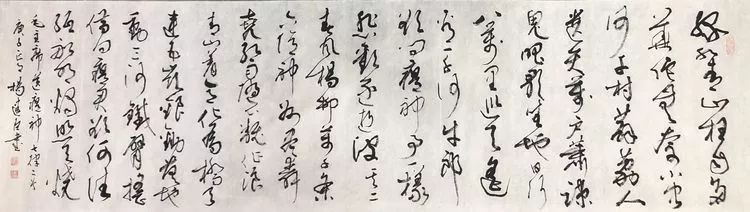 綠水青山枉自多
華佗無奈小虫
何千村薜荔人
遺矢萬戶蕭疎
鬼唱歌坐地日行
八萬里巡天遙
看一千河牛郎
欲問瘟神事一樣
悲歡逐逝波其二
春風楊柳萬千條
六億神州盡舜
堯紅雨隨心翻作浪
青山着意化為橋天
連五嶺銀鋤落地
動三河鐵臂搖
借問瘟君欲何往
紙船明燭照天燒
毛主席送瘟神七律二首
庚子正月楊建書